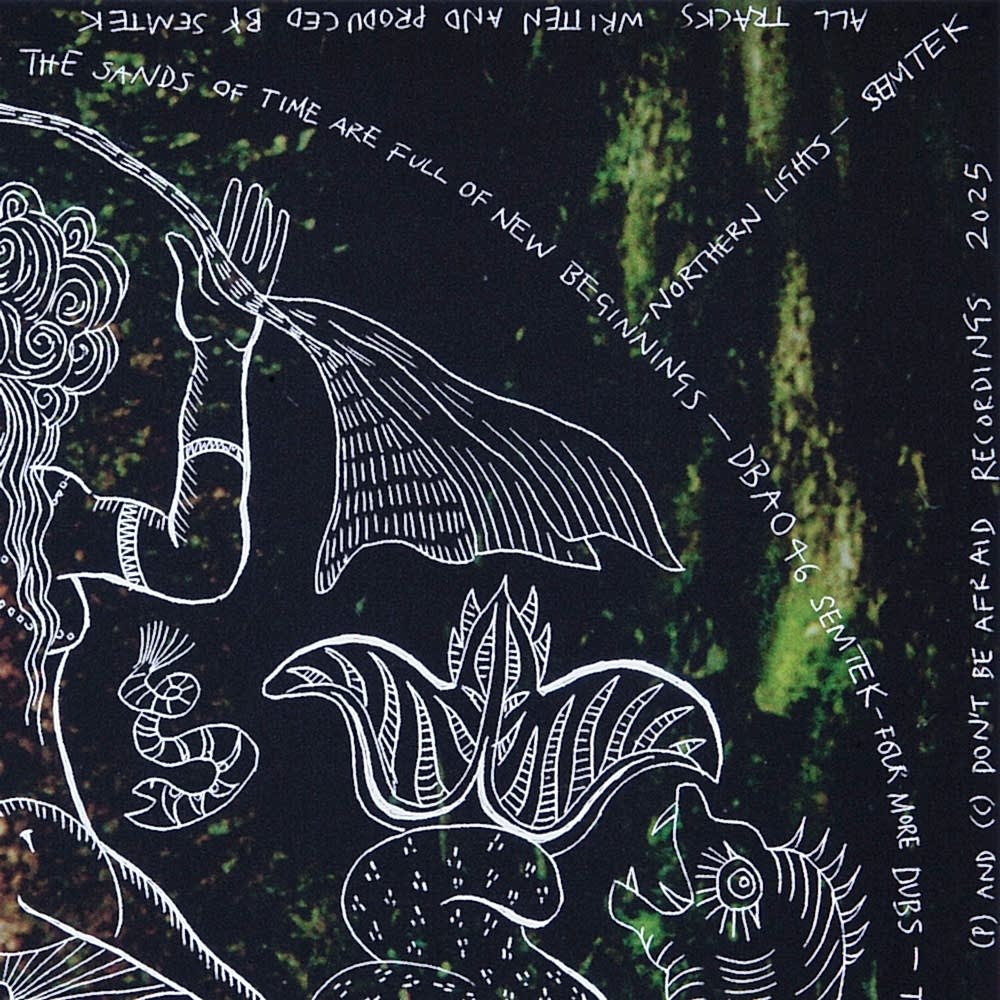 ALL TRACKS WRITTEN AND PRODUCED BY SEMTEK
THE SANDS OF TIME ARE FULL OF NEW BEGINNINGS — DBA046 SEMTEK — FOUR MORE DUBS —
- NORTHERN LIGHTS — SEMTEK
(P) AND (C) DON'T BE AFRAID RECORDINGS 2025